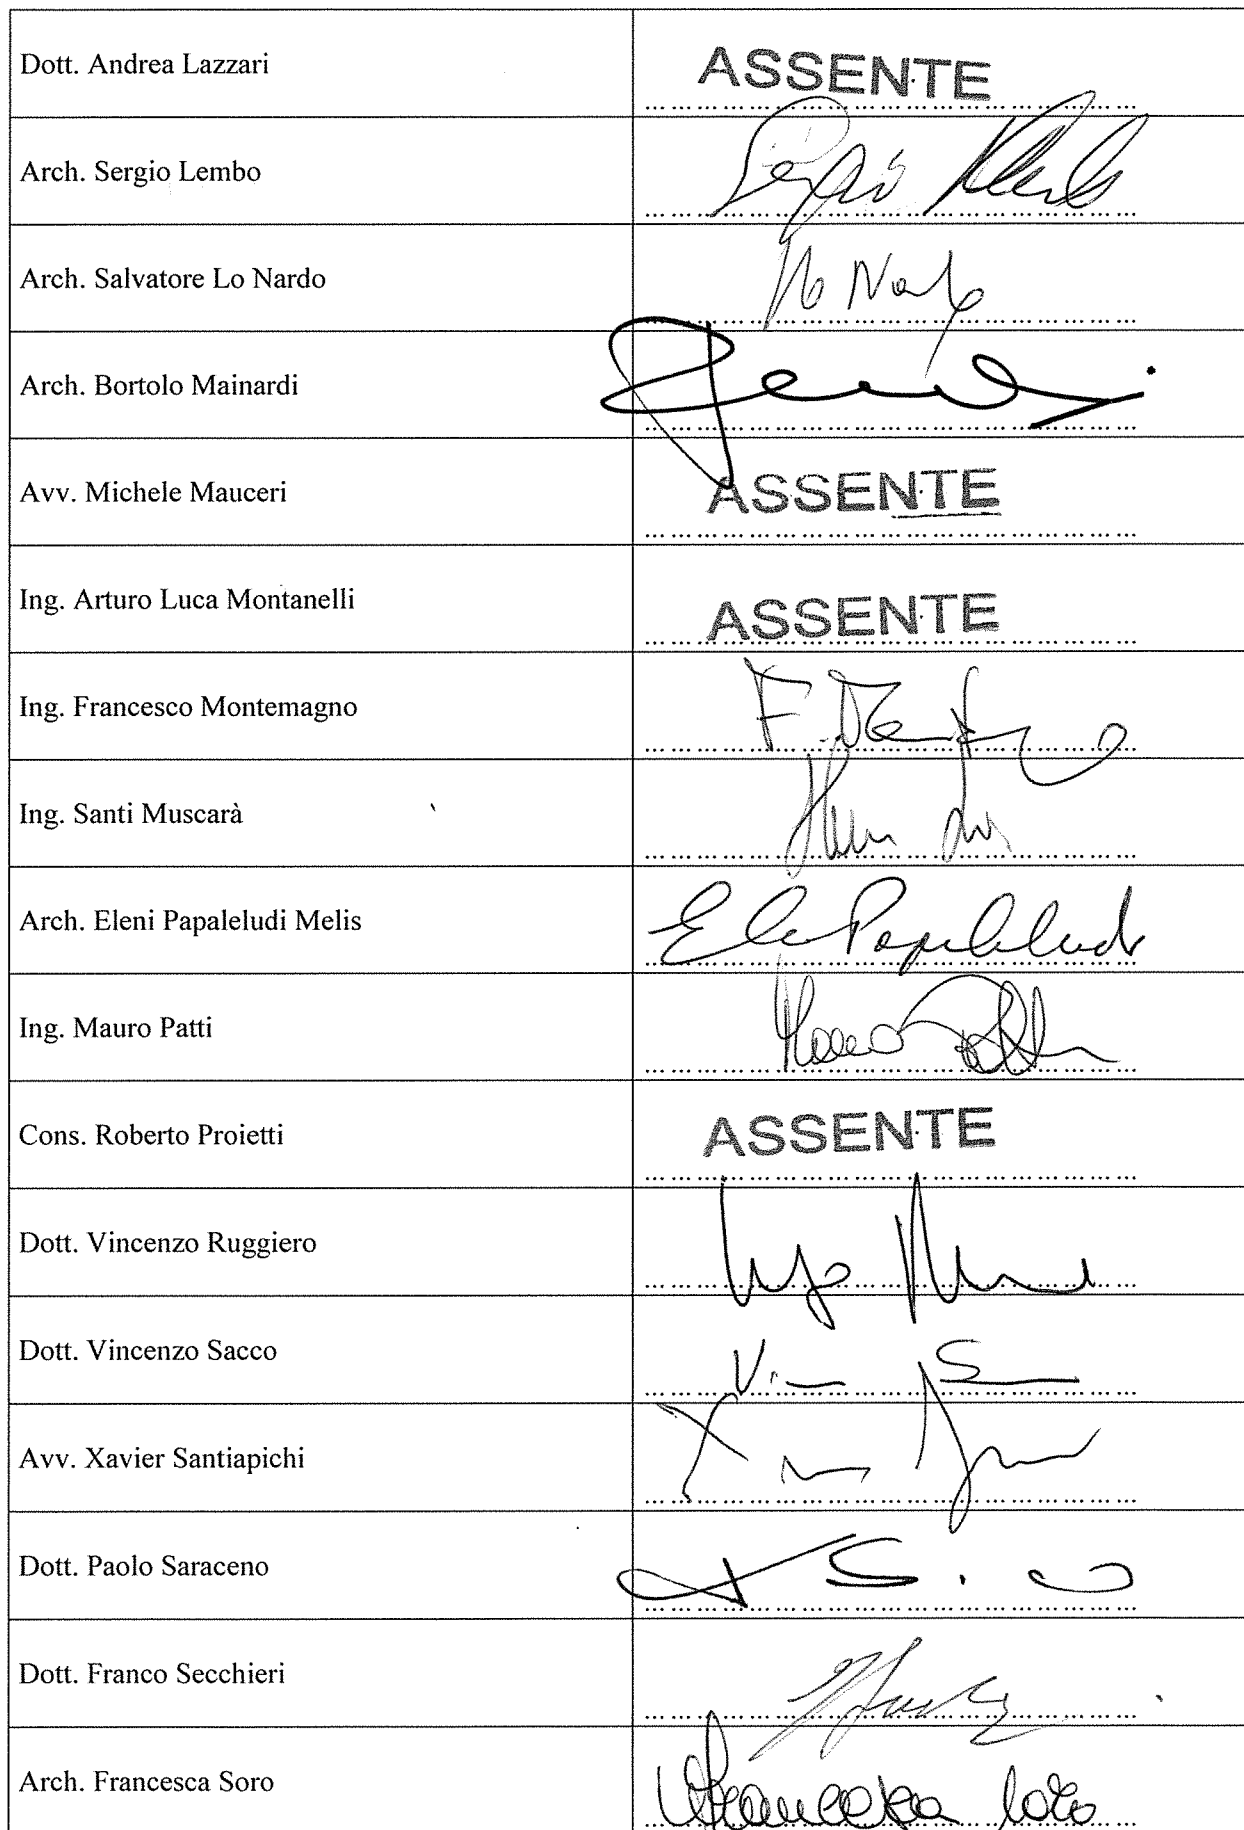 Dott. Andrea Lazzari ASSENTE
Arch. Sergio Lembo Sergio Lembo
Arch. Salvatore Lo Nardo Lo Nardo
Arch. Bortolo Mainardi
Avv. Michele Mauceri ASSENTE
Ing. Arturo Luca Montanelli ASSENTE
Ing. Francesco Montemagno
Ing. Santi Muscarà
Arch. Eleni Papaleludi Melis Ele Papaleludi
Ing. Mauro Patti Mauro Patti
Cons. Roberto Proietti ASSENTE
Dott. Vincenzo Ruggiero
Dott. Vincenzo Sacco
Avv. Xavier Santiapichi
Dott. Paolo Saraceno
Dott. Franco Secchieri
Arch. Francesca Soro Francesca Soro